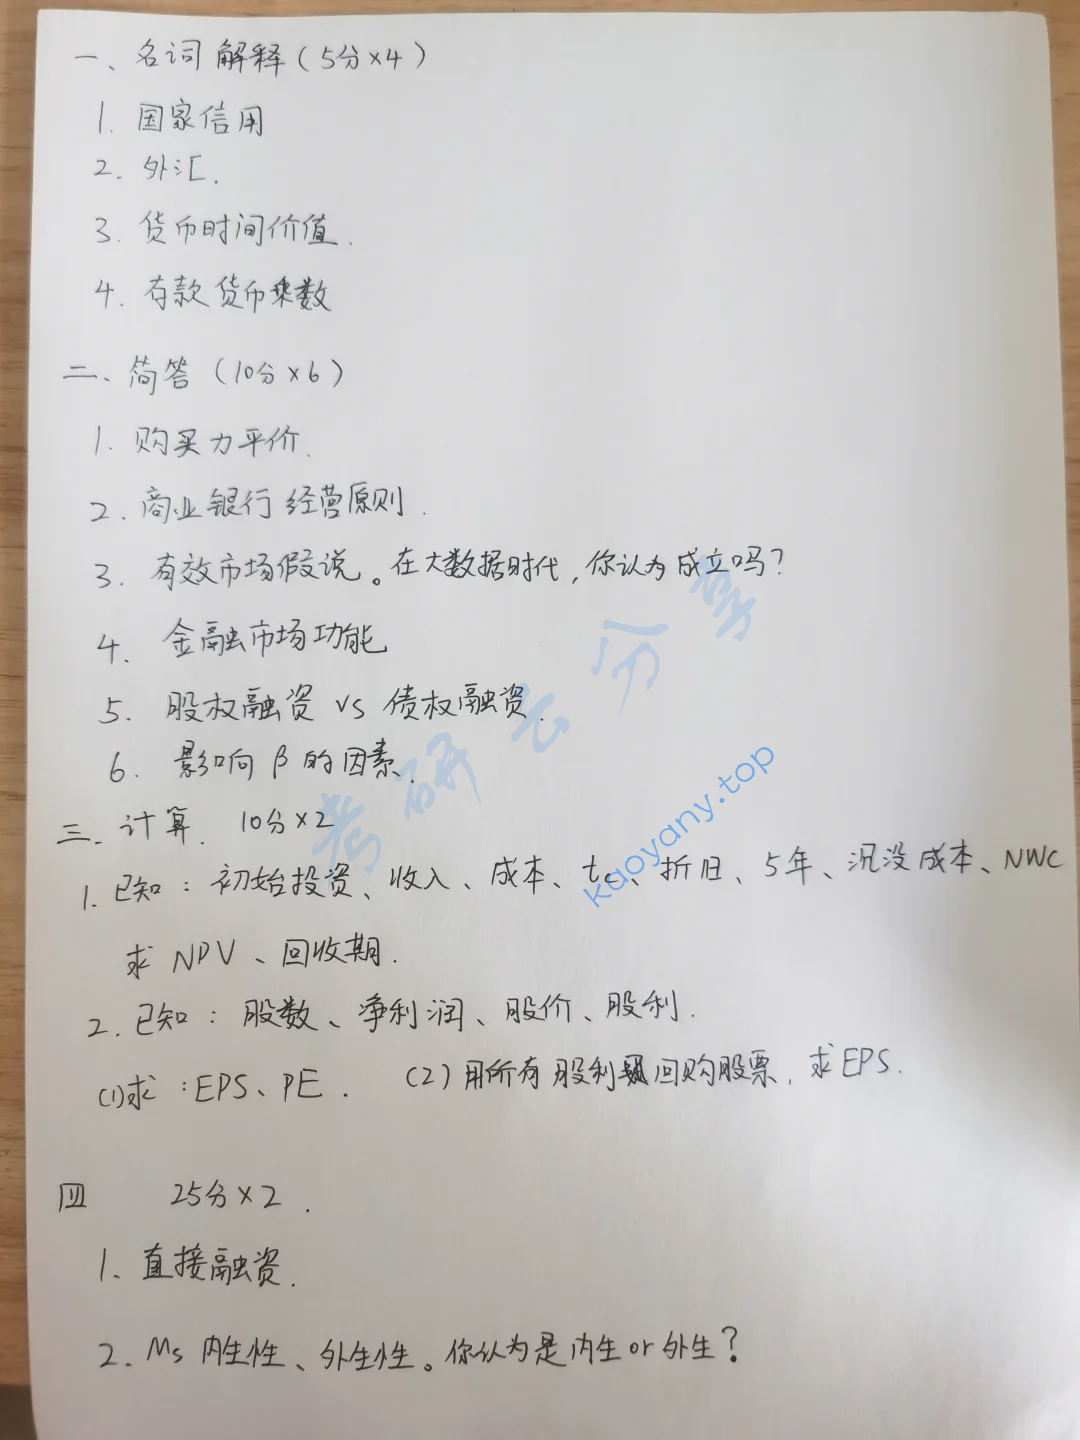 一、名词解释（5分×4）
1. 国家信用
2. 外汇.
3. 货币时间价值.
4. 存款货币乘数
二、简答（10分×6）
1. 购买力平价.
2. 商业银行经营原则.
3. 有效市场假说。在大数据时代，你认为成立吗？
4. 金融市场功能
5. 股权融资 vs 债权融资.
6. 影响β的因素.
三、计算. 10分×2
1. 已知：初始投资、收入、成本、tc、折旧、5年、沉没成本、NWC
求 NPV、回收期.
2. 已知：股数、净利润、股价、股利.
(1)求：EPS、PE. (2)用所有股利回购股票，求EPS.
四 25分×2.
1、直接融资.
2. Ms 内生性、外生性。你认为是内生or外生？
考研云分享
kaoyany.top